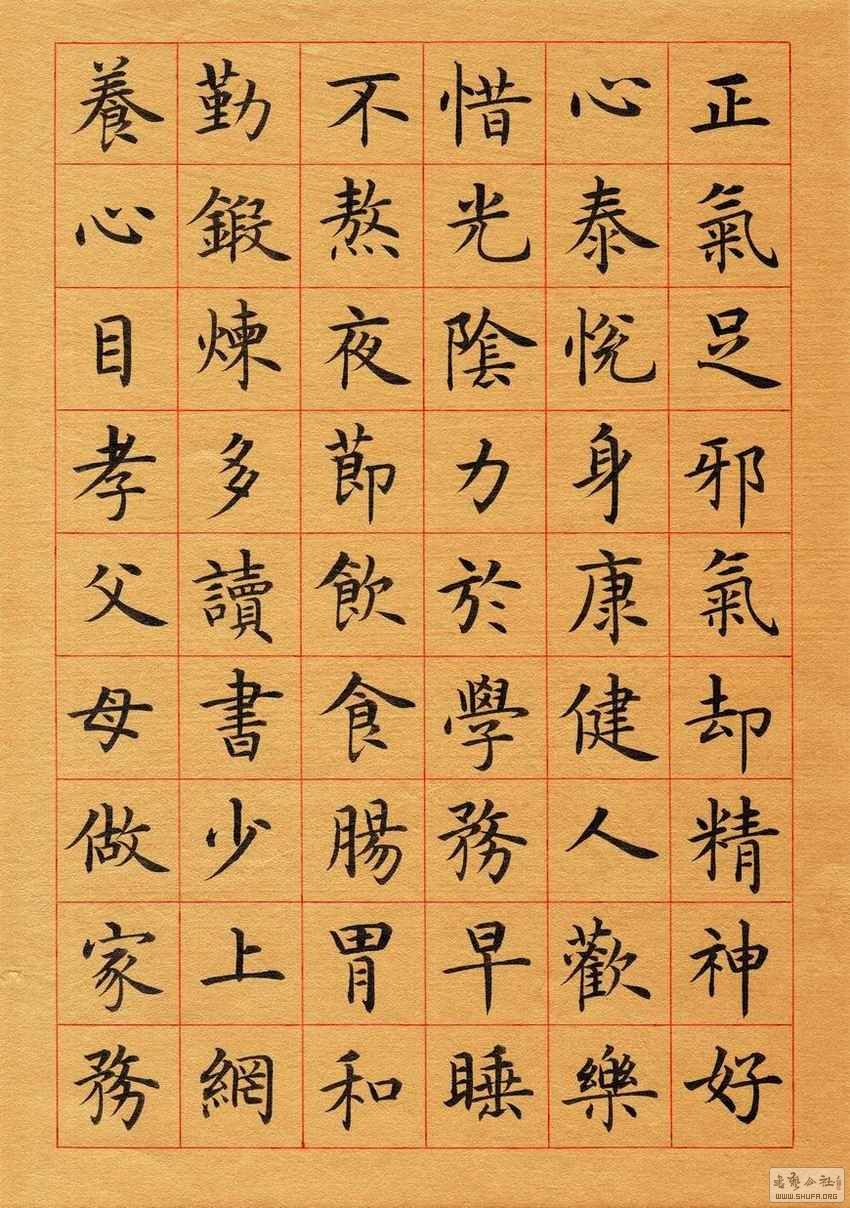 正氣足邪氣却精神好
心泰悅身康健人歡樂
惜光陰力於學務早睡
不熬夜節飲食腸胃和
勤鍛煉多讀書少上網
養心目孝父母做家務
WWW.SHUFA.ORG